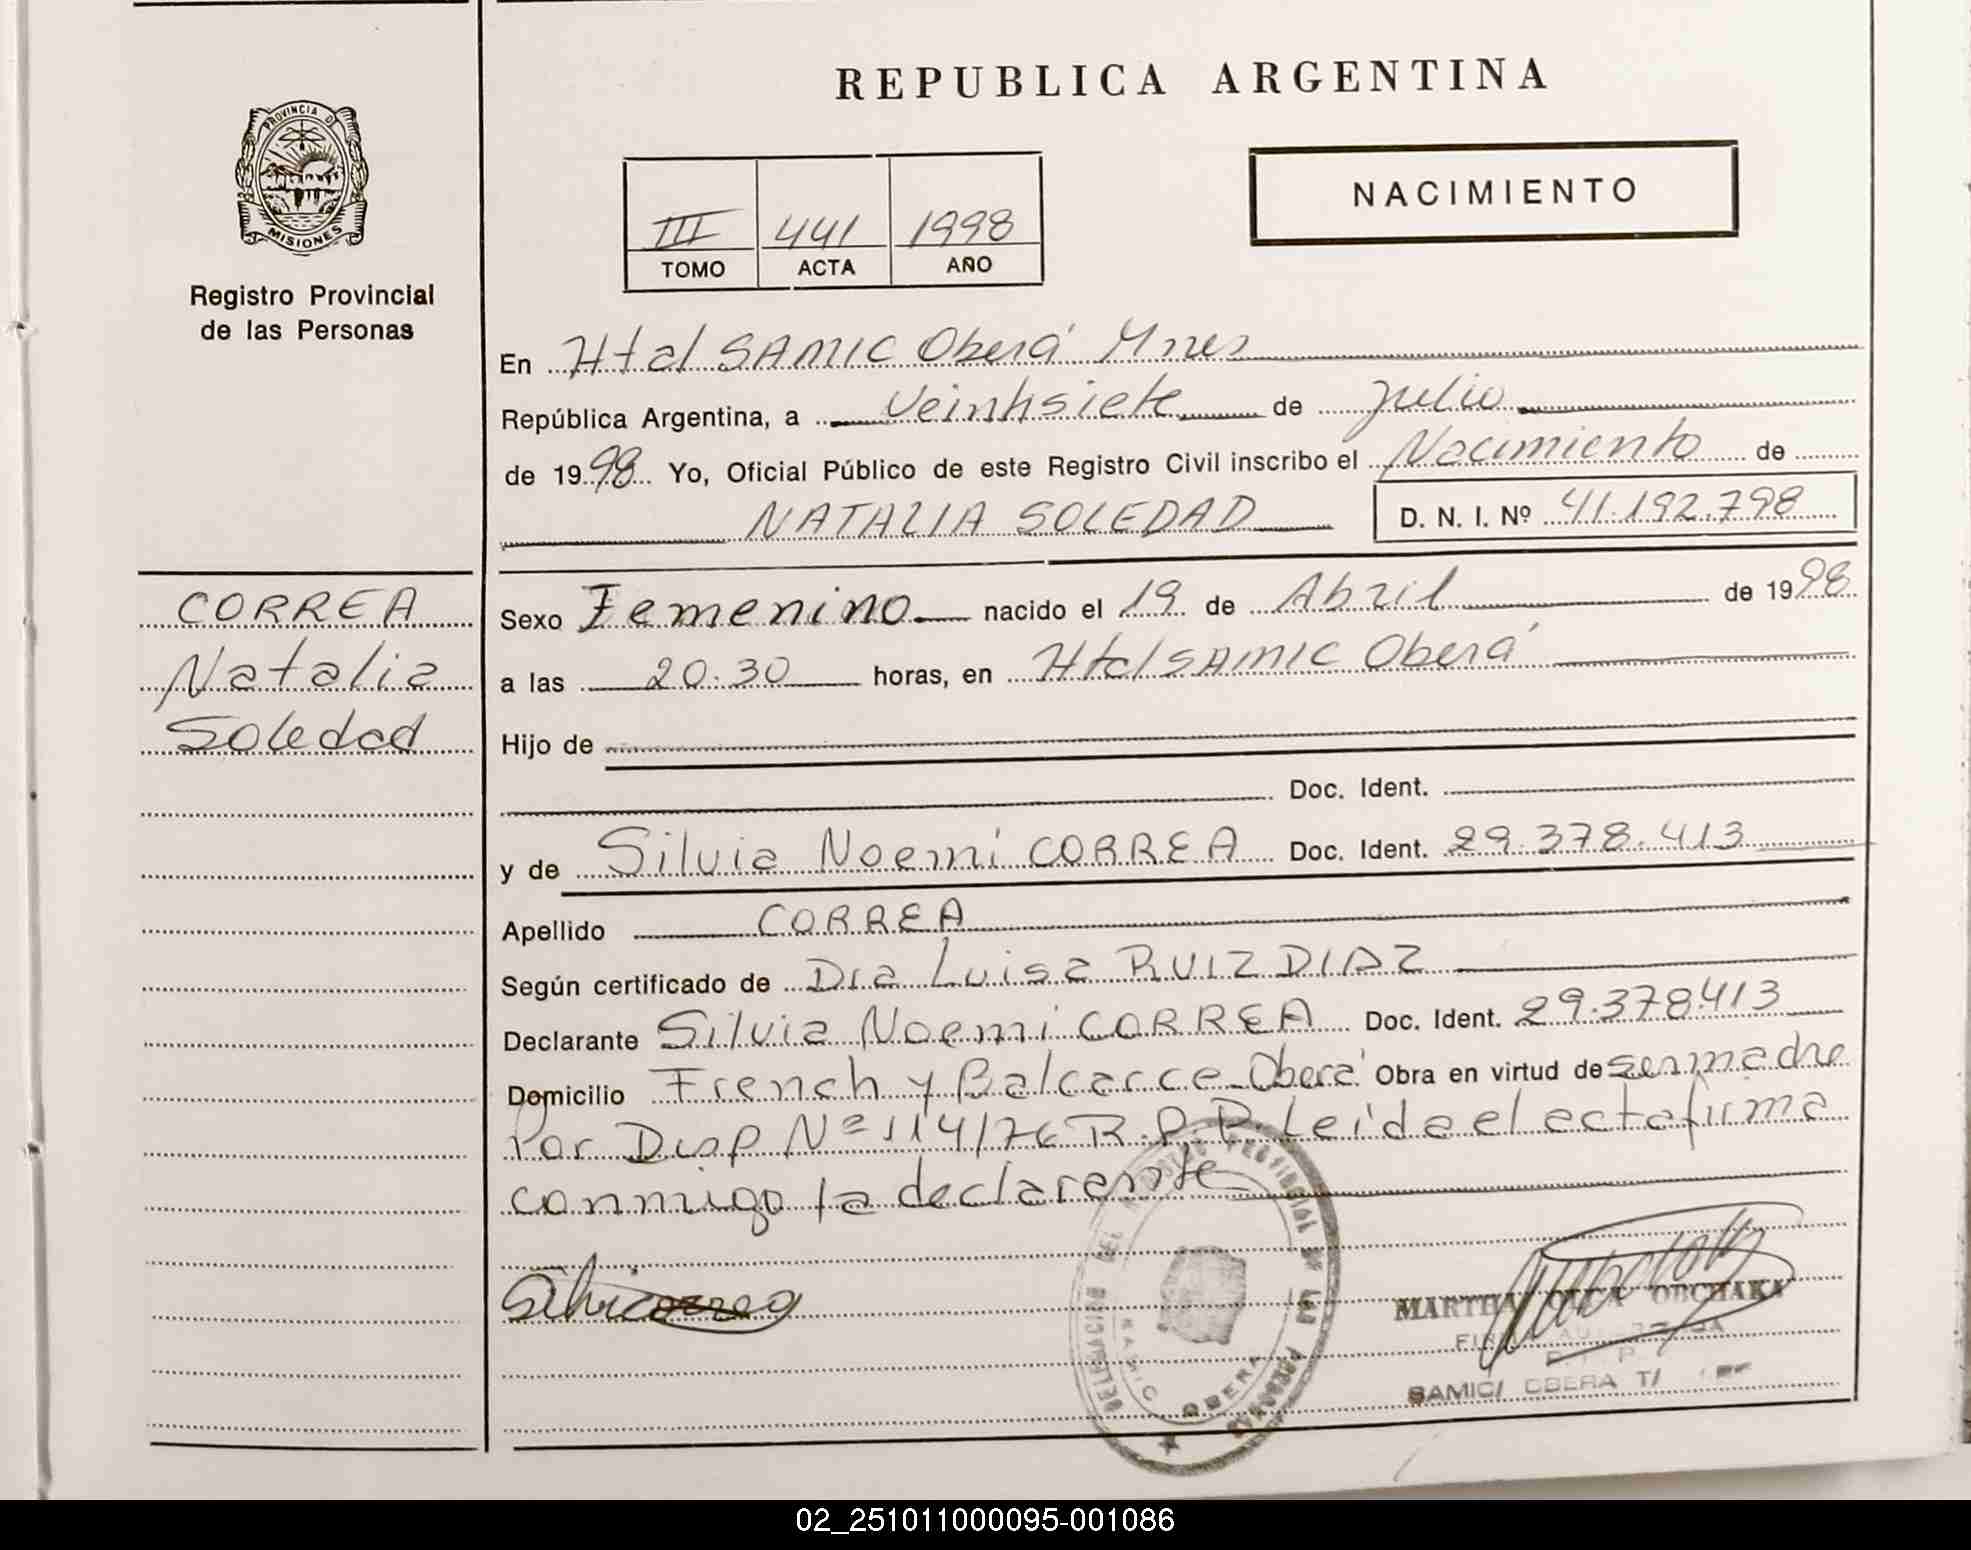 REPUBLICA ARGENTINA
PROVINCIA D
MISIONES
Registro Provincial
de las Personas
NACIMIENTO
III 441 1998
TOMO ACTA AÑO
En Htal SAMIC Oberá Mnes
República Argentina, a Veintisiete de Julio
de 1998 Yo, Oficial Público de este Registro Civil inscribo el Nacimiento de
NATALIA SOLEDAD D. N. I. Nº 41.192.798
CORREA
Natalia
Soledad
Sexo Femenino nacido el 19 de Abril de 1998
a las 20.30 horas, en Htal SAMIC Oberá
Hijo de
Doc. Ident.
y de Silvia Noemi CORREA Doc. Ident. 29.378.413
Apellido CORREA
Según certificado de Dra Luisa RUIZ DIAZ
Declarante Silvia Noemi CORREA Doc. Ident. 29.378.413
Domicilio French y Balcarce-Oberá Obra en virtud de ser madre
Por Disp Nº 114/76 R.P.P. Leida el acta firma
conmigo la declarante
DELEGACION DEL REGISTRO PROVINCIAL DE LAS PERSONAS
SAMIC
OBERA
MARTHA OLGA OBCHAKA
FIRMA AUTORIZADA
R. P. P.
SAMIC/ OBERA T/
02_251011000095-001086